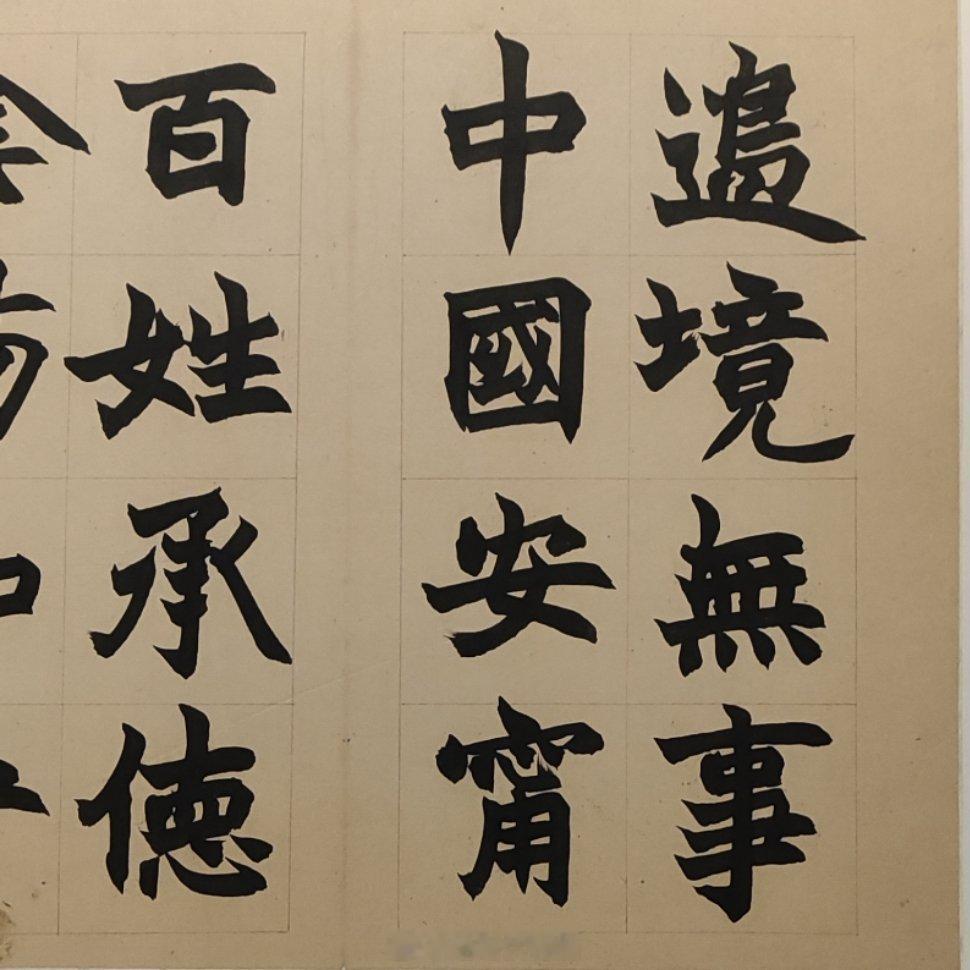 邉境無事
中國安甯
百姓承徳